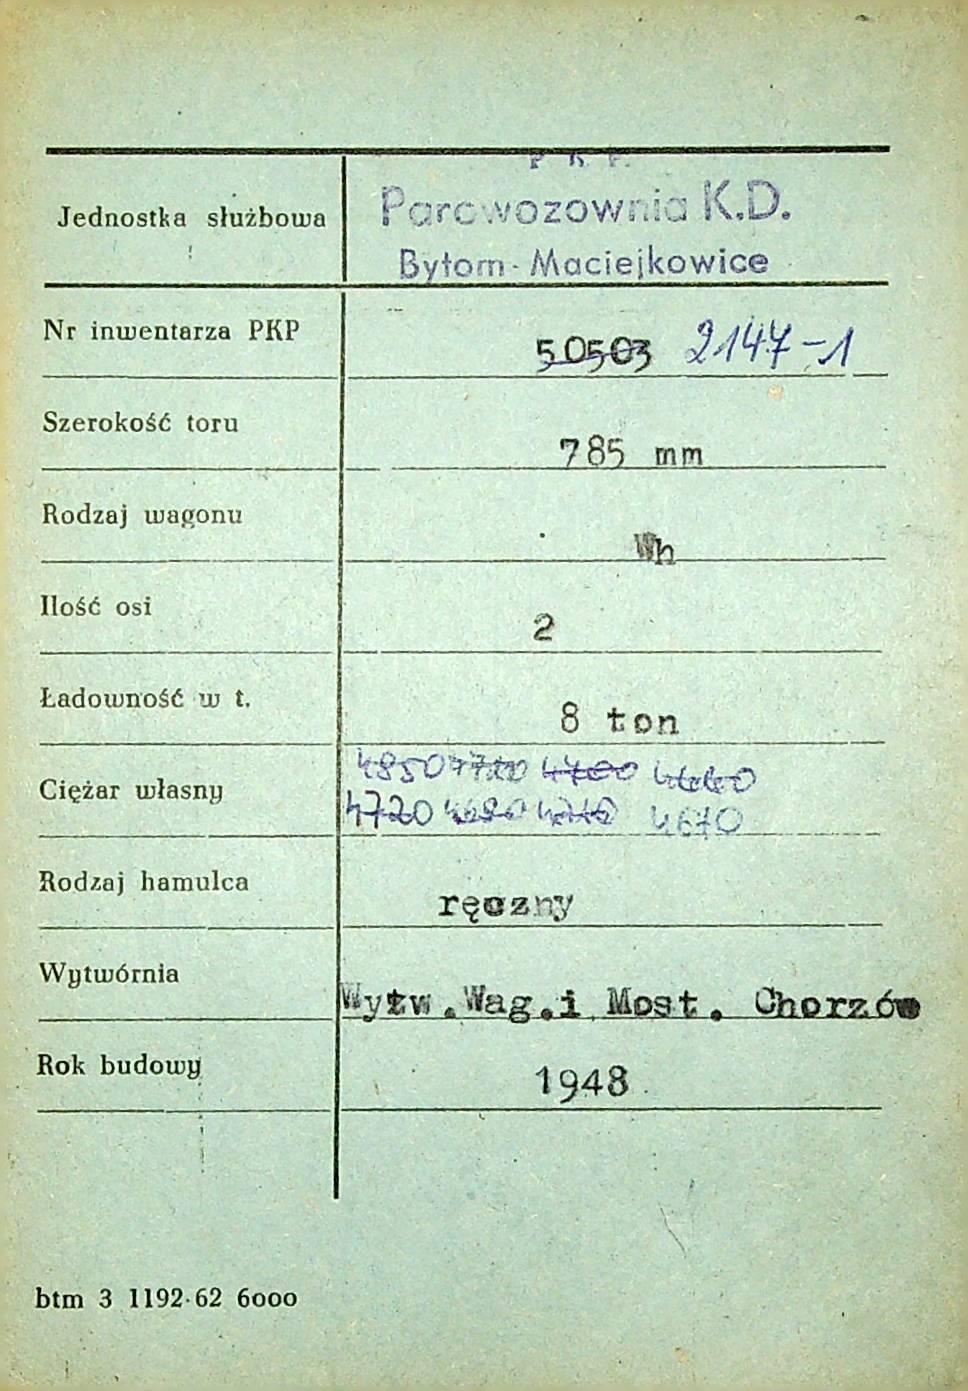 P. K. P.
Jednostka służbowa Parowozownia K.D.
Bytom - Maciejkowice
Nr inwentarza PKP 50503 2147-1
Szerokość toru 785 mm
Rodzaj wagonu Wh
Ilość osi 2
Ładowność w t. 8 ton
4850 4700 4660
Ciężar własny
4720 4670
Rodzaj hamulca ręczny
Wytwórnia Wytw.Wag.i Most. Chorzów
Rok budowy 1948
btm 3 1192-62 6000